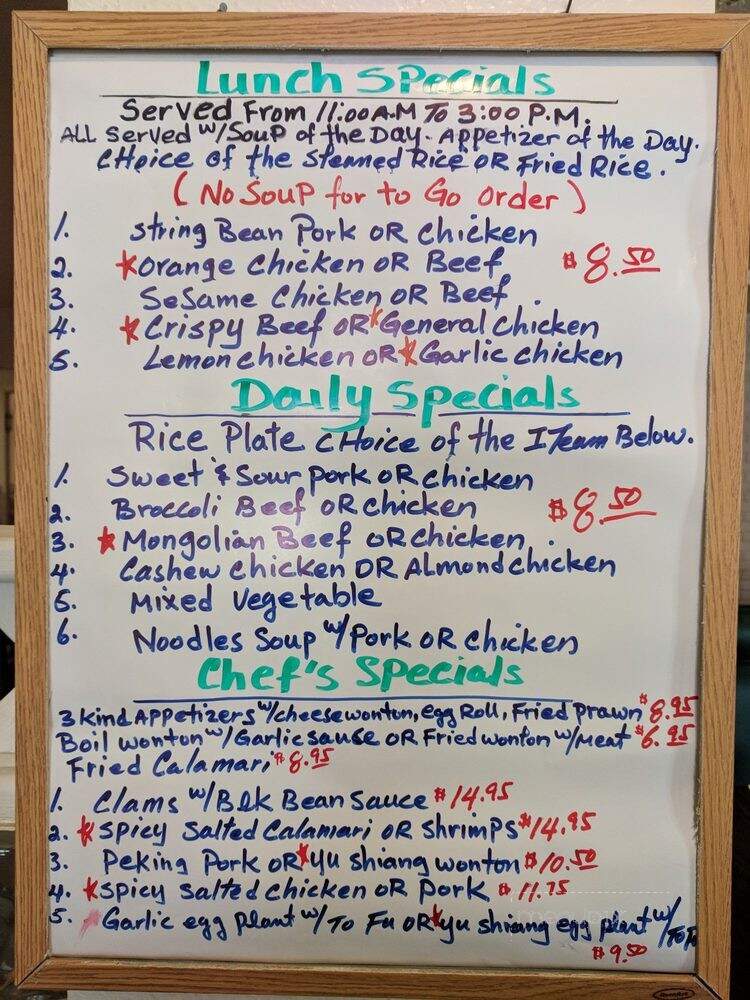 Lunch Specials
Served From 11:00 A.M To 3:00 P.M.
ALL Served w/Soup of the Day. Appetizer of the Day.
CHoice of the Steamed Rice OR Fried Rice.
(No Soup for to Go Order)
1. String Bean Pork OR Chicken
2. *Orange Chicken OR Beef $8.50
3. SeSame Chicken OR Beef.
4. *Crispy Beef OR *General Chicken
5. Lemon chicken OR *Garlic chicken
Daily Specials
Rice Plate cHoice of the ITeam Below.
1. Sweet & Sour pork OR chicken
2. Broccoli Beef OR chicken $8.50
3. *Mongolian Beef OR chicken.
4. Cashew chicken OR Almond chicken
5. Mixed Vegetable
6. Noodles Soup w/Pork OR chicken
Chef's Specials
3 kind APPetizers w/cheese wonton, egg Roll, Fried Prawn $8.95
Boil wonton w/Garlic sause OR Fried wonton w/Meat $6.95
Fried Calamari $8.95
1. Clams w/Blk Bean Sauce $14.95
2. *Spicy Salted Calamari OR Shrimps $14.95
3. Peking Pork OR *Yu shiang wonton $10.50
4. *Spicy Salted chicken OR Pork $11.75
5. *Garlic egg plant w/To Fu OR *yu shiang egg plant w/ToFu
$9.50